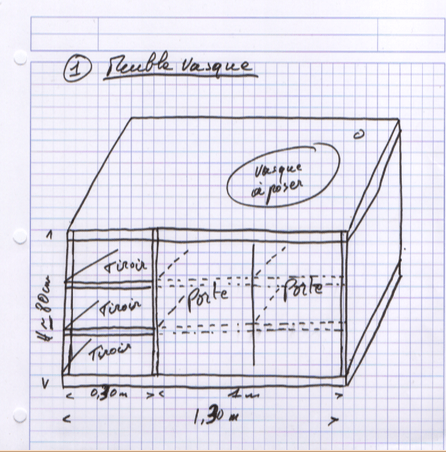 1 Meuble vasque
vasque
à poser
Tiroir
Tiroir
Tiroir
Porte
Porte
H ≃ 80 cm
0,30 m
1 m
1,30 m